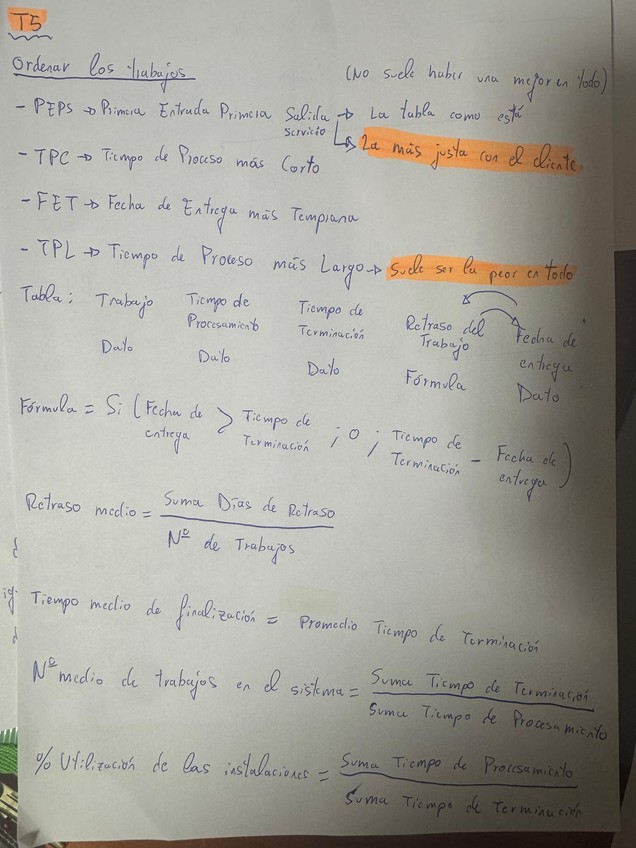 T5
Ordenar los trabajos (No suele haber una mejor en todo)
- PEPS → Primera Entrada Primera Salida → La tabla como está
servicio → La más justa con el cliente
- TPC → Tiempo de Proceso más Corto
- FET → Fecha de Entrega más Temprana
- TPL → Tiempo de Proceso más Largo → Suele ser la peor en todo
Tabla: Trabajo Tiempo de Procesamiento Tiempo de Terminación Retraso del Trabajo Fecha de entrega
Dato Dato Dato Fórmula Dato
Fórmula = Si (Fecha de entrega > Tiempo de Terminación ; 0 ; Tiempo de Terminación - Fecha de entrega)
Retraso medio = Suma Días de Retraso
Nº de Trabajos
Tiempo medio de finalización = Promedio Tiempo de Terminación
Nº medio de trabajos en el sistema = Suma Tiempo de Terminación
Suma Tiempo de Procesamiento
% Utilización de las instalaciones = Suma Tiempo de Procesamiento
Suma Tiempo de Terminación